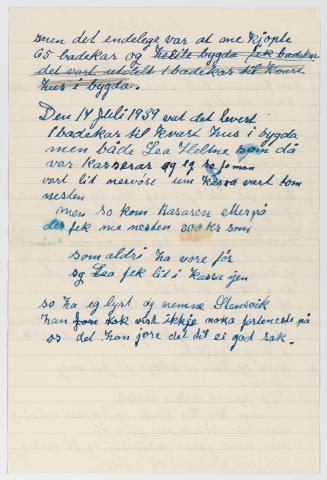 men det endelege var at me kjøpte
65 badekar og heile bygda fek badekar
det vart utdelt 1 badekar til kvart
hus i bygda.
Den 14 Juli 1959 vat det levert
1 badekar til kvart hus i bygda
men både Lea som då
var Kasserar og eg so foman
vart lit nervøse um Kassa vart tom
nesten
men so kom Basaren etterpå
der fek me nesten 300 kr som
som aldri ha vore før
og Lea fek lit i Kassa ijen
so ha eg lyst og nemne Stensvik
han fore nok vist ikkje noka forteneste på
os det han jore det til ei god sak.